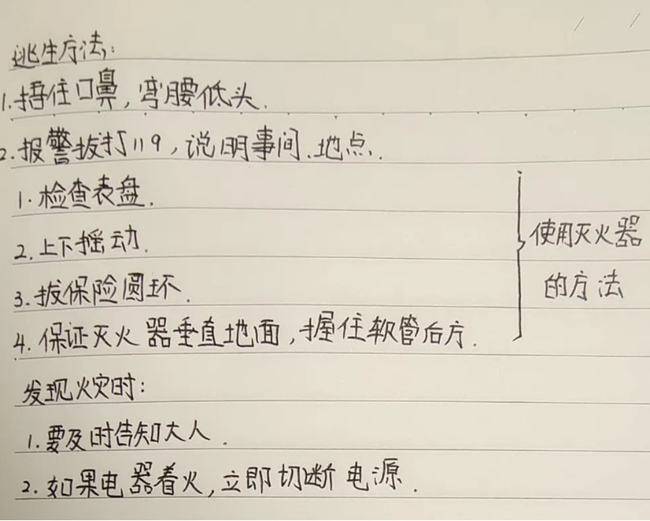 逃生方法:
1.捂住口鼻,弯腰低头.
2.报警拔打119,说明事间.地点.
1.检查表盘.
2.上下摇动.
3.拔保险圆环.
4.保证灭火器垂直地面,握住软管后方.
使用灭火器
的方法
发现火灾时:
1.要及时告知大人.
2.如果电器着火,立即切断电源.